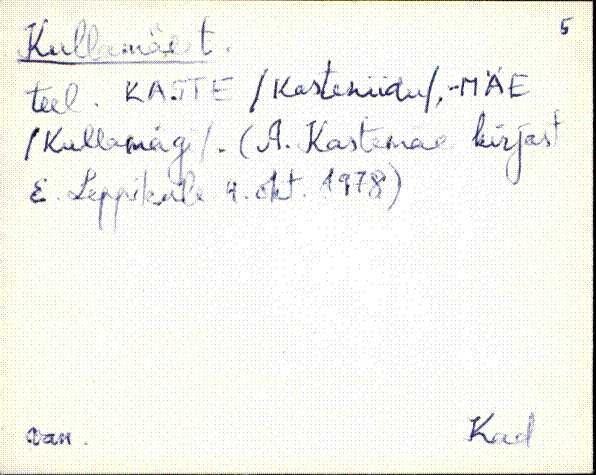 5
Kullamäest.
teel. KASTE /Kasteniidu/, -MÄE
/Kullamägi/. (A. Kastemäe kirjast
E. Leppikule 4. okt. 1978)
van.
Kad